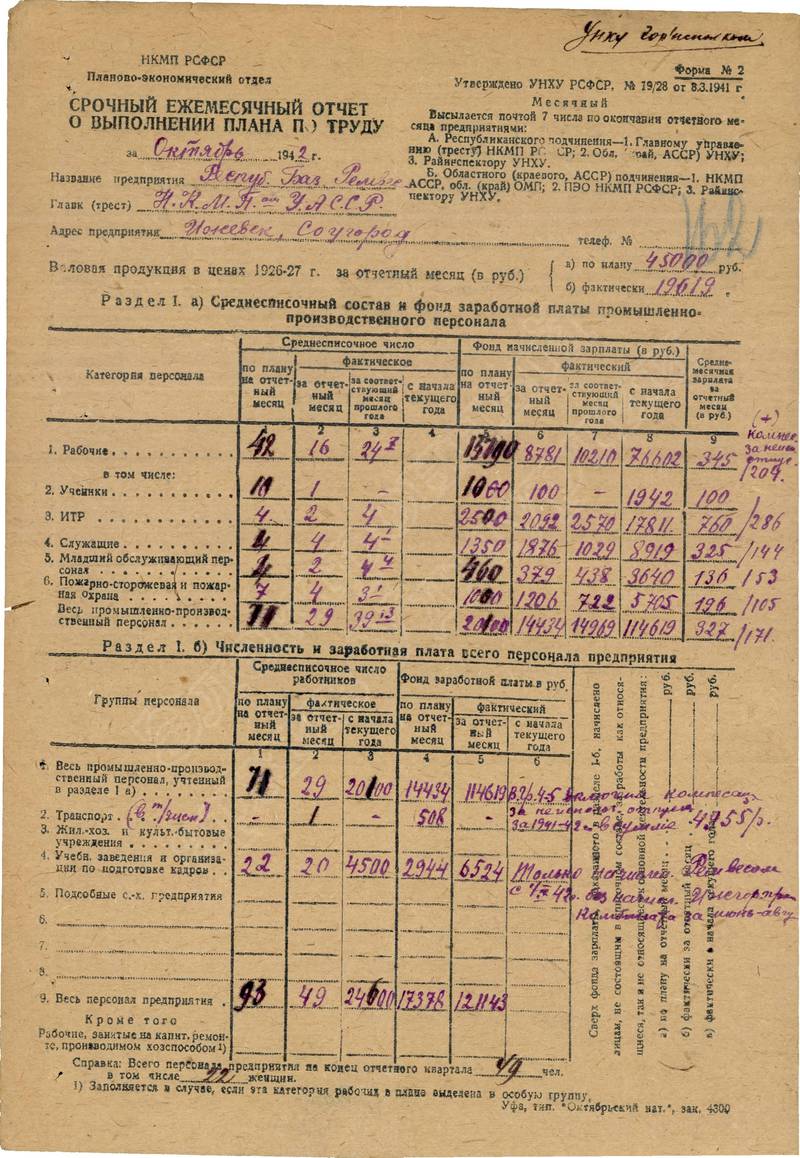 Унку горисполкома
НКМП РСФСР
Планово-экономический отдел
СРОЧНЫЙ ЕЖЕМЕСЯЧНЫЙ ОТЧЕТ
О ВЫПОЛНЕНИИ ПЛАНА ПО ТРУДУ
за Октябрь 1942 г.
Название предприятия Респуб. База
Главк (трест) Н.К.М.П. УАССР.
Адрес предприятия Ижевск, Соцгород
Форма № 2
Утверждено УНХУ РСФСР, № 19/28 от 8.3.1941 г
Месячный
Высылается почтой 7 числа по окончании отчетного ме-
сяца предприятиями:
А. Республиканского подчинения—1. Главному управле-
нию (тресту) НКМП РСФСР; 2. Обл. (край, АССР) УНХУ;
3. Райинспектору УНХУ.
Б. Областного (краевого, АССР) подчинения—1. НКМП
АССР, обл. (край) ОМП; 2. ПЭО НКМП РСФСР; 3. Райин-
спектору УНХУ.
телеф. №
Валовая продукция в ценах 1926-27 г. за отчетный месяц (в руб.)
а) по плану 45000 руб.
б) фактически 19619 "
Раздел I. а) Среднесписочный состав и фонд заработной платы промышленно-
производственного персонала
Категория персонала
Среднесписочное число
Фонд начисленной зарплаты (в руб.)
Средне-месячная зарплата за отчетный месяц (в руб.)
по плану на отчетный месяц
фактическое
за отчетный месяц
за соответствующий месяц прошлого года
с начала текущего года
по плану на отчетный месяц
фактический
за отчетный месяц
за соответствующий месяц прошлого года
с начала текущего года
1 2 3 4 5 6 7 8 9
1. Рабочие 42 16 24 8781 10210 76602 345 /209
в том числе:
2. Ученики 1 - 100 - 1942 100
3. ИТР 4. 2 4 2500 2092 2570 17811 760 /286
4. Служащие 4 4 4 1350 1876 1029 8919 325 /144
5. Младший обслуживающий персонал 2 460 379 438 3640 136 /53
6. Пожарно-сторожевая и пожарная охрана 7 4 3 1000 1206 722 5705 196 /105
Весь промышленно-производственный персонал 71 29 39 20100 14434 14969 114619 327 /171.
Раздел I. б) Численность и заработная плата всего персонала предприятия
Группы персонала
Среднесписочное число работников
Фонд заработной платы в руб.
по плану на отчетный месяц
фактическое
за отчетный месяц
с начала текущего года
по плану на отчетный месяц
фактический
за отчетный месяц
с начала текущего года
1 2 3 4 5 6
1. Весь промышленно-производственный персонал, учтенный в разделе 1 а) 71 29 20100 14434 114619
за 1941-42 г. в сумме 4955 р.
2. Транспорт - 1 - 508 -
3. Жил.-хоз. и культ.-бытовые учреждения
4. Учебн. заведения и организации по подготовке кадров 22 20 4500 2944 6524 Только
5. Подсобные с.-х. предприятия
6.
7.
8.
9. Весь персонал предприятия 93 49 24600 17378 121143
Кроме того
Рабочие, занятые на капит. ремонте, производимом хозспособом 1)
Сверх фонда зарплаты, показанного в разделе 1-б, начислено
лицам, не состоящим в списочном составе, за работы как относя-
щиеся, так и не относящиеся к основной деятельности предприятия:
а) по плану на отчетный месяц руб.
б) фактически за отчетный месяц руб.
в) фактически с начала текущего года руб.
Справка: Всего персонала предприятия на конец отчетного квартала 49 чел.
в том числе 22 женщин.
1) Заполняется в случае, если эта категория рабочих в плане выделена в особую группу.
Уфа, тип. "Октябрьский нат.", зак. 4300